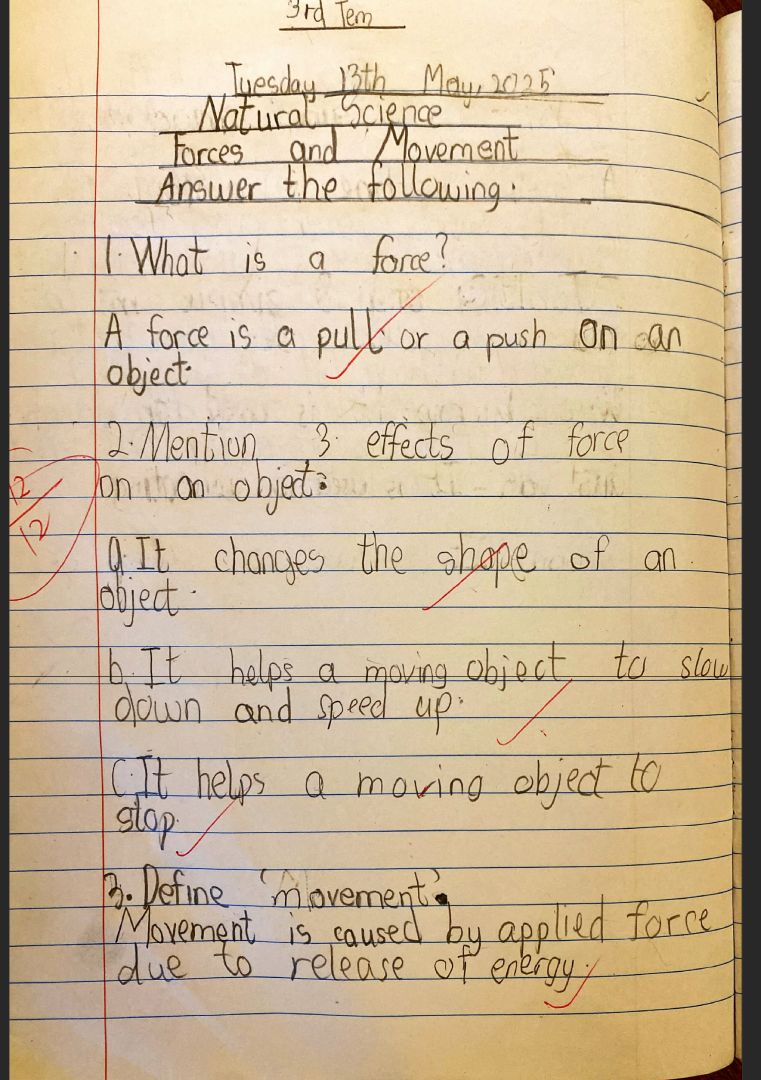 3rd Tem
Tuesday 13th May, 2025
Natural Science
Forces and Movement
Answer the following:
1. What is a force?
A force is a pull or a push on an
object.
2. Mention 3 effects of force
on an object:
12
12
a. It changes the shape of an
object.
b. It helps a moving object to slow
down and speed up.
C. It helps a moving object to
stop.
3. Define 'movement'.
Movement is caused by applied force
due to release of energy.